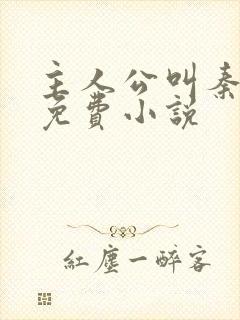 主人公叫秦
免費小說
紅塵一醉客